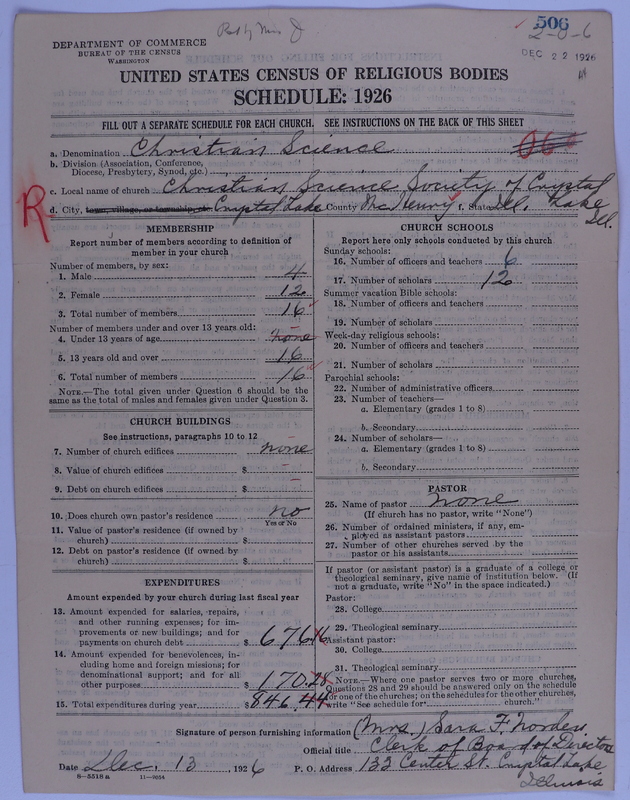 506
2-0-6
DEC 22 1926
DEPARTMENT OF COMMERCE
BUREAU OF THE CENSUS
WASHINGTON
UNITED STATES CENSUS OF RELIGIOUS BODIES
SCHEDULE: 1926
FILL OUT A SEPARATE SCHEDULE FOR EACH CHURCH. SEE INSTRUCTIONS ON THE BACK OF THIS SHEET
a. Denomination Christian Science
b. Division (Association, Conference,
Diocese, Presbytery, Synod, etc.)
c. Local name of church Christian Science Society of Crystal Lake Ill.
R
d. City, town, village, or township, etc. Crystal Lake County McHenry f. State Ill.
MEMBERSHIP
Report number of members according to definition of
member in your church
Number of members, by sex:
1. Male 4
2. Female 12
3. Total number of members 16
Number of members under and over 13 years old:
4. Under 13 years of age none
5. 13 years old and over 16
6. Total number of members 16
NOTE.—The total given under Question 6 should be the
same as the total of males and females given under Question 3.
CHURCH BUILDINGS
See instructions, paragraphs 10 to 12
7. Number of church edifices none
8. Value of church edifices $
9. Debt on church edifices $
10. Does church own pastor's residence no
Yes or No
11. Value of pastor's residence (if owned by
church) $
12. Debt on pastor's residence (if owned by
church) $
EXPENDITURES
Amount expended by your church during last fiscal year
13. Amount expended for salaries, repairs,
and other running expenses; for im-
provements or new buildings; and for
payments on church debt $ 676.16
14. Amount expended for benevolences, in-
cluding home and foreign missions; for
denominational support; and for all
other purposes $ 170.28
15. Total expenditures during year $ 846.44
CHURCH SCHOOLS
Report here only schools conducted by this church
Sunday schools:
16. Number of officers and teachers 6
17. Number of scholars 12
Summer vacation Bible schools:
18. Number of officers and teachers
19. Number of scholars
Week-day religious schools:
20. Number of officers and teachers
21. Number of scholars
Parochial schools:
22. Number of administrative officers
23. Number of teachers—
a. Elementary (grades 1 to 8)
b. Secondary
24. Number of scholars—
a. Elementary (grades 1 to 8)
b. Secondary
PASTOR
25. Name of pastor none
(If church has no pastor, write "None")
26. Number of ordained ministers, if any, em-
ployed as assistant pastors
27. Number of other churches served by the
pastor or his assistants
If pastor (or assistant pastor) is a graduate of a college or
theological seminary, give name of institution below. (If
not a graduate, write "No" in the space indicated.)
Pastor:
28. College
29. Theological seminary
Assistant pastor:
30. College
31. Theological seminary
NOTE.—Where one pastor serves two or more churches,
Questions 28 and 29 should be answered only on the schedule
for one of the churches; on the schedules for the other churches,
write "See schedule for church."
Signature of person furnishing information (Mrs.) Sara F. Norden
Official title Clerk of Board of Directors
Date Dec. 13, 1926 P. O. Address 133 Center St. Crystal Lake
Illinois
8-5518 a 11-9054